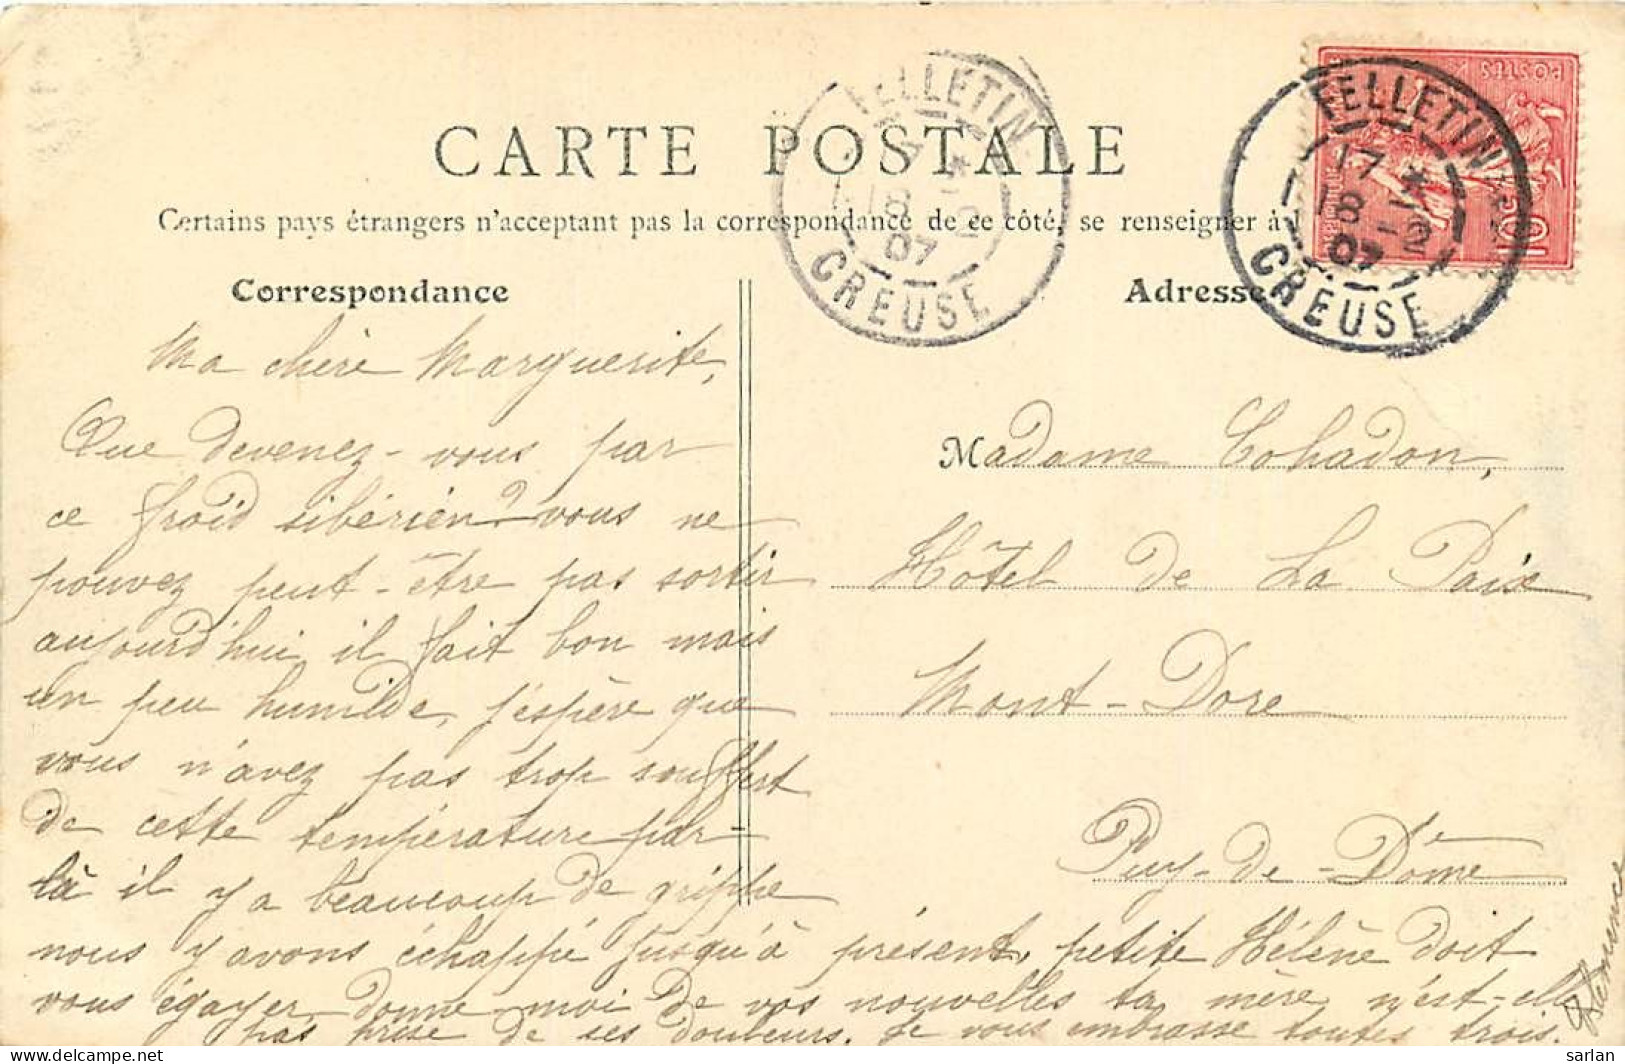 CARTE POSTALE
Certains pays étrangers n'acceptent pas la correspondance de ce côté, se renseigner à l
Correspondance
Adresse
FELLETIN
18 -2
07
CREUSE
FELLETIN
17 *
18 -2
07
CREUSE
POSTES
10
Ma chère Marguerite,
Que devenez-vous par
ce froid sibérien? vous ne
pouvez peut-être pas sortir
aujourd'hui il fait bon mais
un peu humide, j'espère que
vous n'avez pas trop souffert
de cette température par-
là il y a beaucoup de grippe
nous y avons échappé jusqu'à présent, petite Hélène doit
vous égayer donne-moi de vos nouvelles ta mère n'est-elle
pas prise de ses douleurs. Je vous embrasse toutes trois.
Clémence
Madame Cohadon,
Hôtel de La Paix
Mont-Dore
Puy-de-Dôme
sarlan